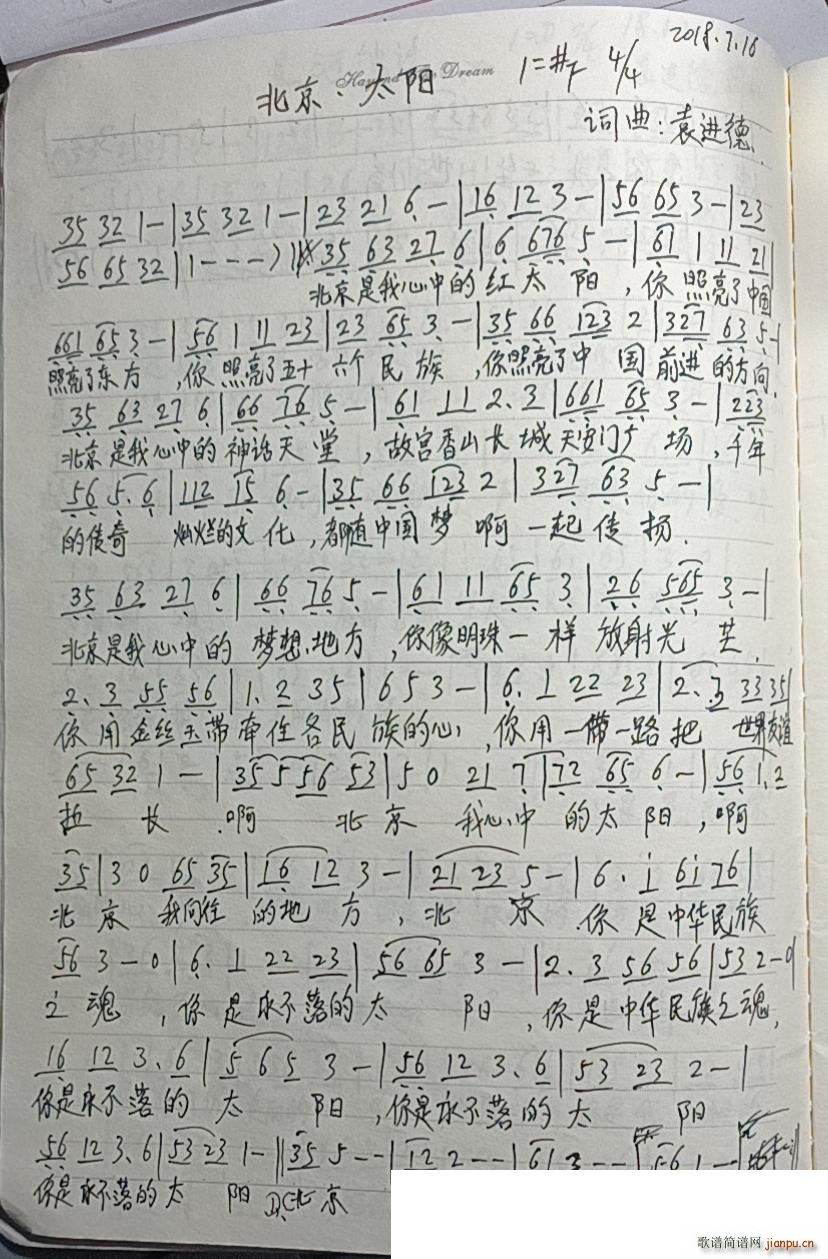 2018.7.16
北京·太阳 1=#F 4/4
词曲：袁进德
35 32 1-|35 32 1-|23 21 6-|16 12 3-|56 65 3-|23
56 65 32|1---)‖ 35 63 27 6|6 676 5-|61 1 11 21|
北京是我心中的红太阳，你照亮了中国
661 65 3-|56 1 11 23|23 65 3-|35 66 123 2|327 63 5-|
照亮了东方，你照亮了五十六个民族，你照亮了中国前进的方向.
35 63 27 6|66 76 5-|61 11 2.3|661 65 3-|223
北京是我心中的神话天堂，故宫香山长城天安门广场，千年
56 5.6|112 15 6-|35 66 123 2|327 63 5-|
的传奇 灿烂的文化，都随中国梦啊一起传扬.
35 63 27 6|66 76 5-|61 11 65 3|26 565 3-|
北京是我心中的梦想地方，你像明珠一样放射光芒.
2.3 55 56|1.2 35|6 5 3-|6.1 22 23|2.3 33 35|
你用金丝玉带牵住各民族的心，你用一带一路把世界友谊
65 32 1-|35 5 56 53|5 0 21 7|72 65 6-|56 1.2
拉长.啊 北京 我心中的太阳，啊
35|3 0 65 35|16 12 3-|21 23 5-|6.i 6i 76|
北京 我向往的地方，北京.你是中华民族
56 3-0|6.1 22 23|56 65 3-|2.3 56 56|53 2-0|
之魂，你是永不落的太阳，你是中华民族之魂，
16 12 3.6|5 6 5 3-|56 12 3.6|53 23 2-|
你是永不落的太阳，你是永不落的太阳
56 12 3.6|53 23 1-‖35 5--|12 2--|61 3--|
你是永不落的太阳 D.C北京
歌谱简谱网
jianpu.cn